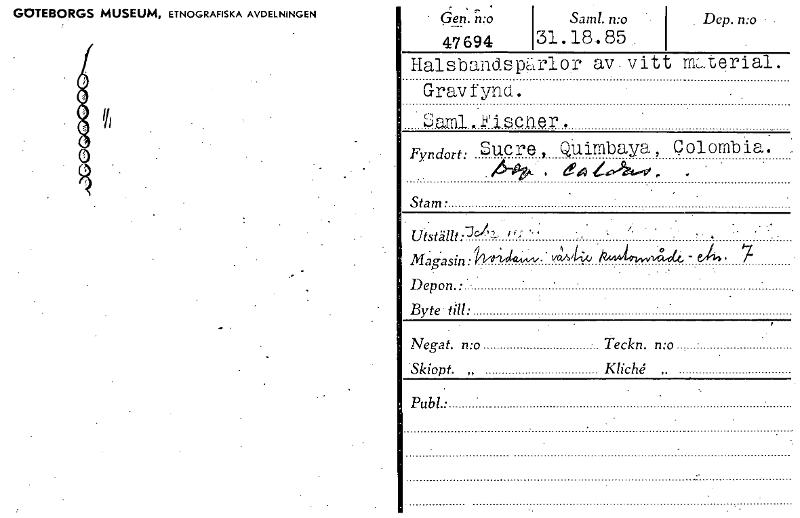 GÖTEBORGS MUSEUM, ETNOGRAFISKA AVDELNINGEN
1/1
Gen. n:o Saml. n:o Dep. n:o
47694 31.18.85
Halsbandspärlor av vitt material.
Gravfynd.
Saml. Fischer.
Fyndort: Sucre, Quimbaya, Colombia.
Dep. Caldas.
Stam:
Utställt:
Magasin: västra kustområde - etn. 7
Depon.:
Byte till:
Negat. n:o Teckn. n:o
Skiopt. „ Kliché „
Publ.: